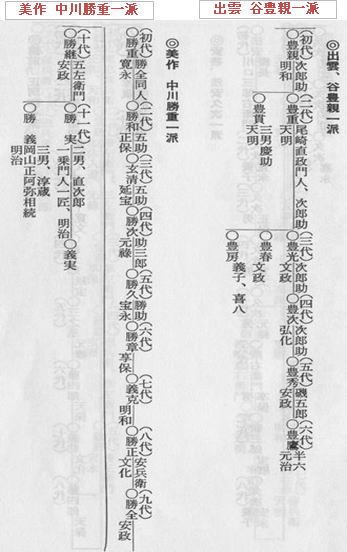 美作 中川勝重一派
出雲 谷豊親一派
◎出雲、谷豊親一派
(初代)次郎助
○豊親 明和
(二代)尾崎直政門人、次郎助
○豊重 天明
○豊貫 三男慶助 天明
(三代)次郎助
○豊光 文政
○豊春 文政
○豊房 義子、喜八
(四代)次郎助
○豊次 弘化
(五代)磯五郎
○豊秀 安政
(六代)半六
○豊鷹 元治
◎美作 中川勝重一派
(初代)勝全同人
○勝重 寛永
(二代)五助
○勝和 正保
(三代)五助
○玄清 延宝
(四代)助三郎
○勝次 元禄
(五代)勝助
○勝久 宝永
(六代)
○勝章 享保
(七代)
○義克 明和
(八代)安兵衛
○勝正 文化
(九代)
○勝全 安政
(十代)五左衛門
○勝継 安政
(十一代)
○勝実 二男、直次郎 一乗門人一匠、明治
○義実
○勝義 岡山正阿弥相続 三男、淳蔵 明治